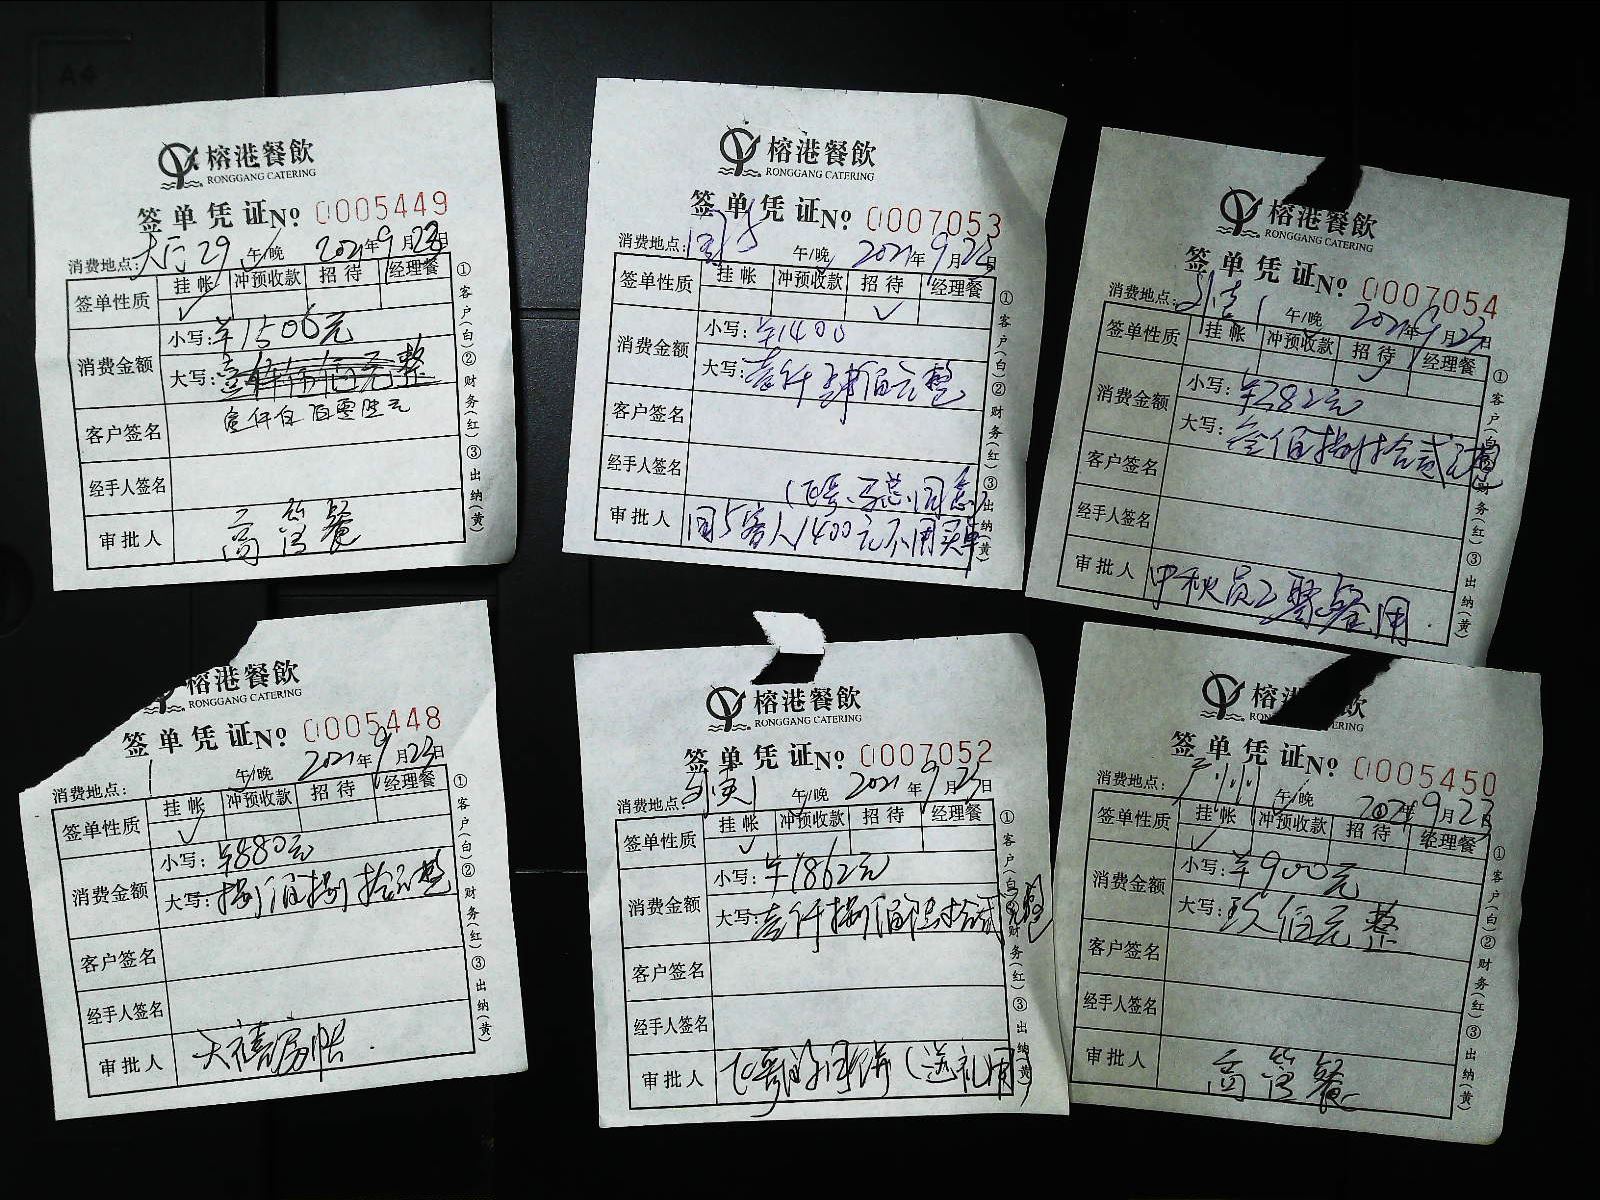 榕港餐飲
RONGGANG CATERING
签单凭证 № 0005449
消费地点: 大厅29 午/晚 2021年9月23日
签单性质 挂帐 冲预收款 招待 经理餐
✓
消费金额 小写: ¥1506元
大写:
壹仟伍佰零陆元
客户签名
经手人签名
审批人 高管餐
①客户(白)②财务(红)③出纳(黄)
榕港餐飲
RONGGANG CATERING
签单凭证 № 0007053
消费地点: 午/晚 2021年9月23日
签单性质 挂帐 冲预收款 招待 经理餐
✓
消费金额 小写: ¥1400
大写: 壹仟肆佰元整
客户签名
经手人签名
审批人 5客人1400元不用买单
①客户(白)②财务(红)③出纳(黄)
榕港餐飲
RONGGANG CATERING
签单凭证 № 0007054
消费地点: 午/晚 2021年9月23日
签单性质 挂帐 冲预收款 招待 经理餐
✓
消费金额 小写: 382元
大写: 叁佰捌拾贰元整
客户签名
经手人签名
审批人 中秋员工聚餐用
①客户(白)②财务(红)③出纳(黄)
榕港餐飲
RONGGANG CATERING
签单凭证 № 0005448
消费地点: 午/晚 2021年9月23日
签单性质 挂帐 冲预收款 招待 经理餐
✓
消费金额 小写: ¥880元
大写: 捌佰捌拾元整
客户签名
经手人签名
审批人
①客户(白)②财务(红)③出纳(黄)
榕港餐飲
RONGGANG CATERING
签单凭证 № 0007052
消费地点: 午/晚 2021年9月23日
签单性质 挂帐 冲预收款 招待 经理餐
✓
消费金额 小写: ¥1862元
大写: 壹仟捌佰陆拾贰元整
客户签名
经手人签名
审批人 月饼(送礼用)
①客户(白)②财务(红)③出纳(黄)
榕港餐飲
RONGGANG CATERING
签单凭证 № 0005450
消费地点: 广州 午/晚 2021年9月23日
签单性质 挂帐 冲预收款 招待 经理餐
✓
消费金额 小写: ¥900元
大写: 玖佰元整
客户签名
经手人签名
审批人 高管餐
①客户(白)②财务(红)③出纳(黄)